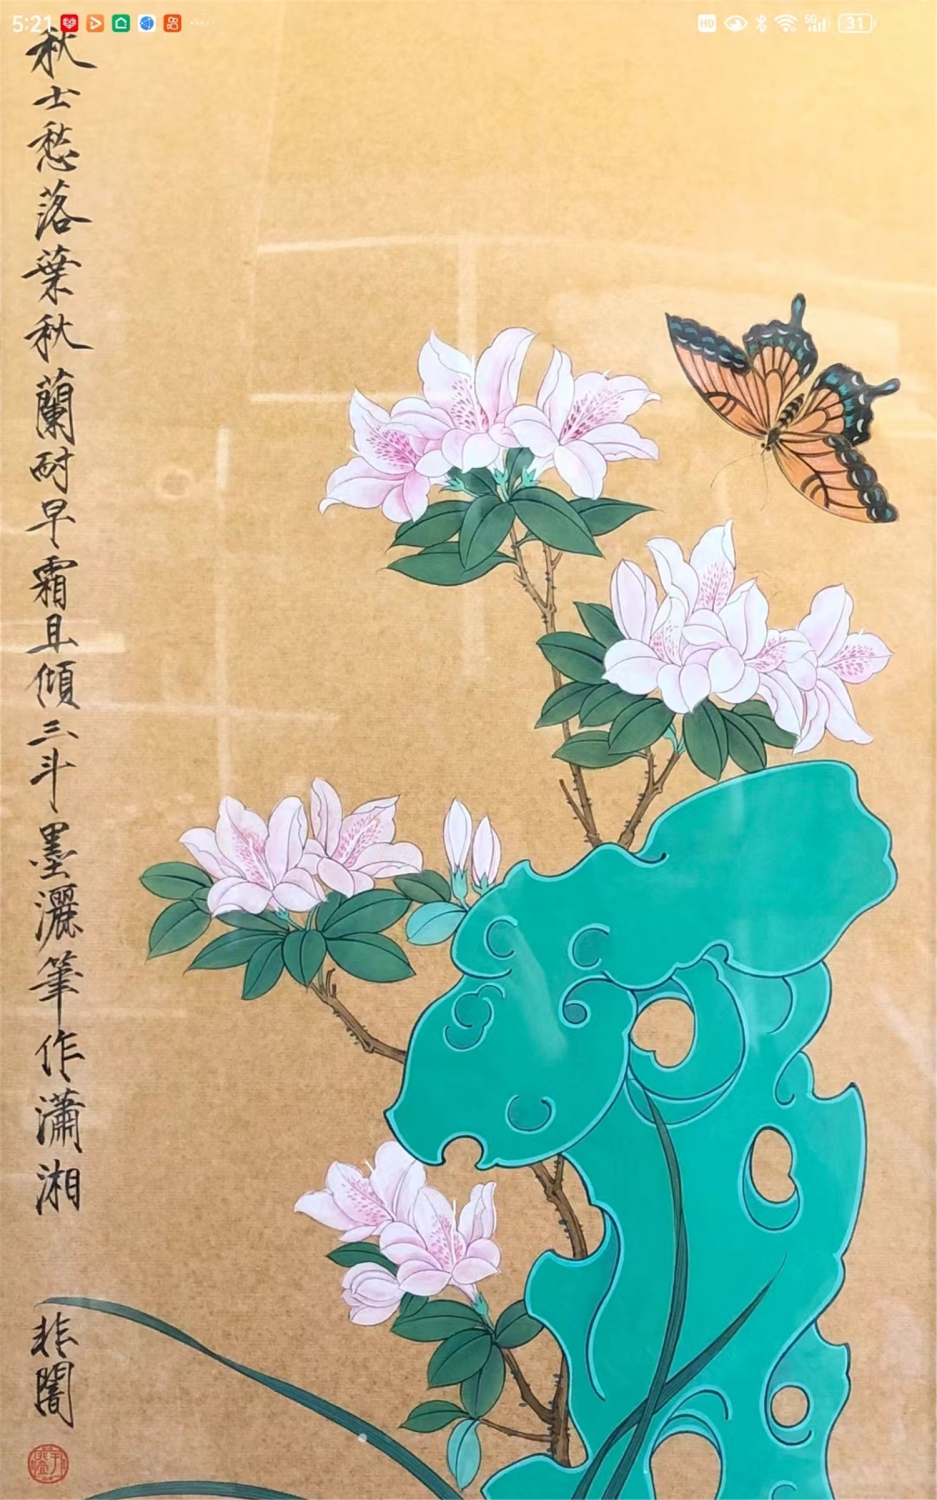 5:21
HD 5G 31
秋士愁落葉秋蘭耐早霜且傾三斗墨灑筆作瀟湘
非闇